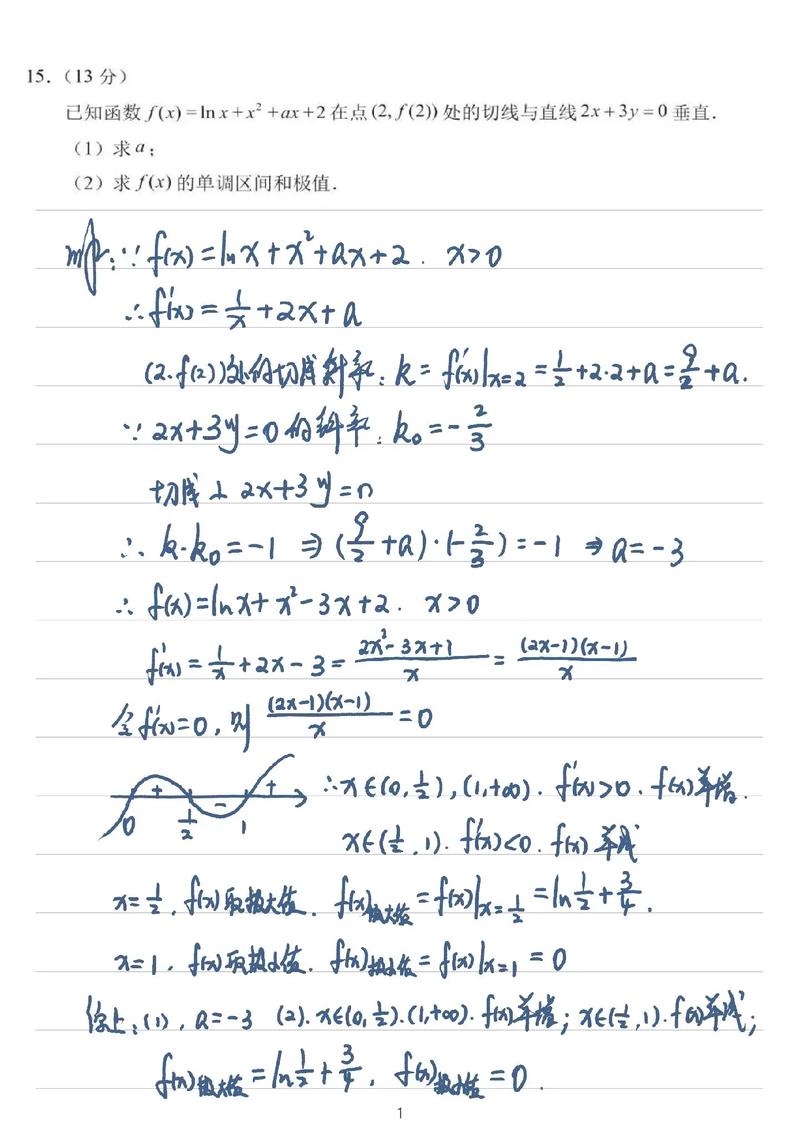 15.（13 分）
已知函数 f(x)=ln x+x²+ax+2 在点 (2, f(2)) 处的切线与直线 2x+3y=0 垂直.
（1）求 a；
（2）求 f(x) 的单调区间和极值.
解: ∵ f(x)=lnx+x²+ax+2. x>0
∴ f'(x)=1/x+2x+a
(2.f(2))处的切线斜率: k=f'(x)|x=2=1/2+2·2+a=9/2+a.
∵ 2x+3y=0的斜率: k₀=-2/3
切线⊥2x+3y=0
∴ k·k₀=-1 ⇒ (9/2+a)·(-2/3)=-1 ⇒ a=-3
∴ f(x)=lnx+x²-3x+2. x>0
f'(x)=1/x+2x-3=(2x²-3x+1)/x=(2x-1)(x-1)/x
令f'(x)=0, 则 (2x-1)(x-1)/x=0
+ - + 0 1/2 1 ∴x∈(0,1/2),(1,+∞). f'(x)>0. f(x)单增.
x∈(1/2,1). f'(x)<0. f(x)单减
x=1/2, f(x)取极大值. f(x)极大值=f(x)|x=1/2=ln1/2+3/4.
x=1, f(x)取极小值. f(x)极小值=f(x)|x=1=0
综上: (1), a=-3 (2). x∈(0,1/2).(1,+∞). f(x)单增; x∈(1/2,1). f(x)单减;
f(x)极大值=ln1/2+3/4, f(x)极小值=0.
1